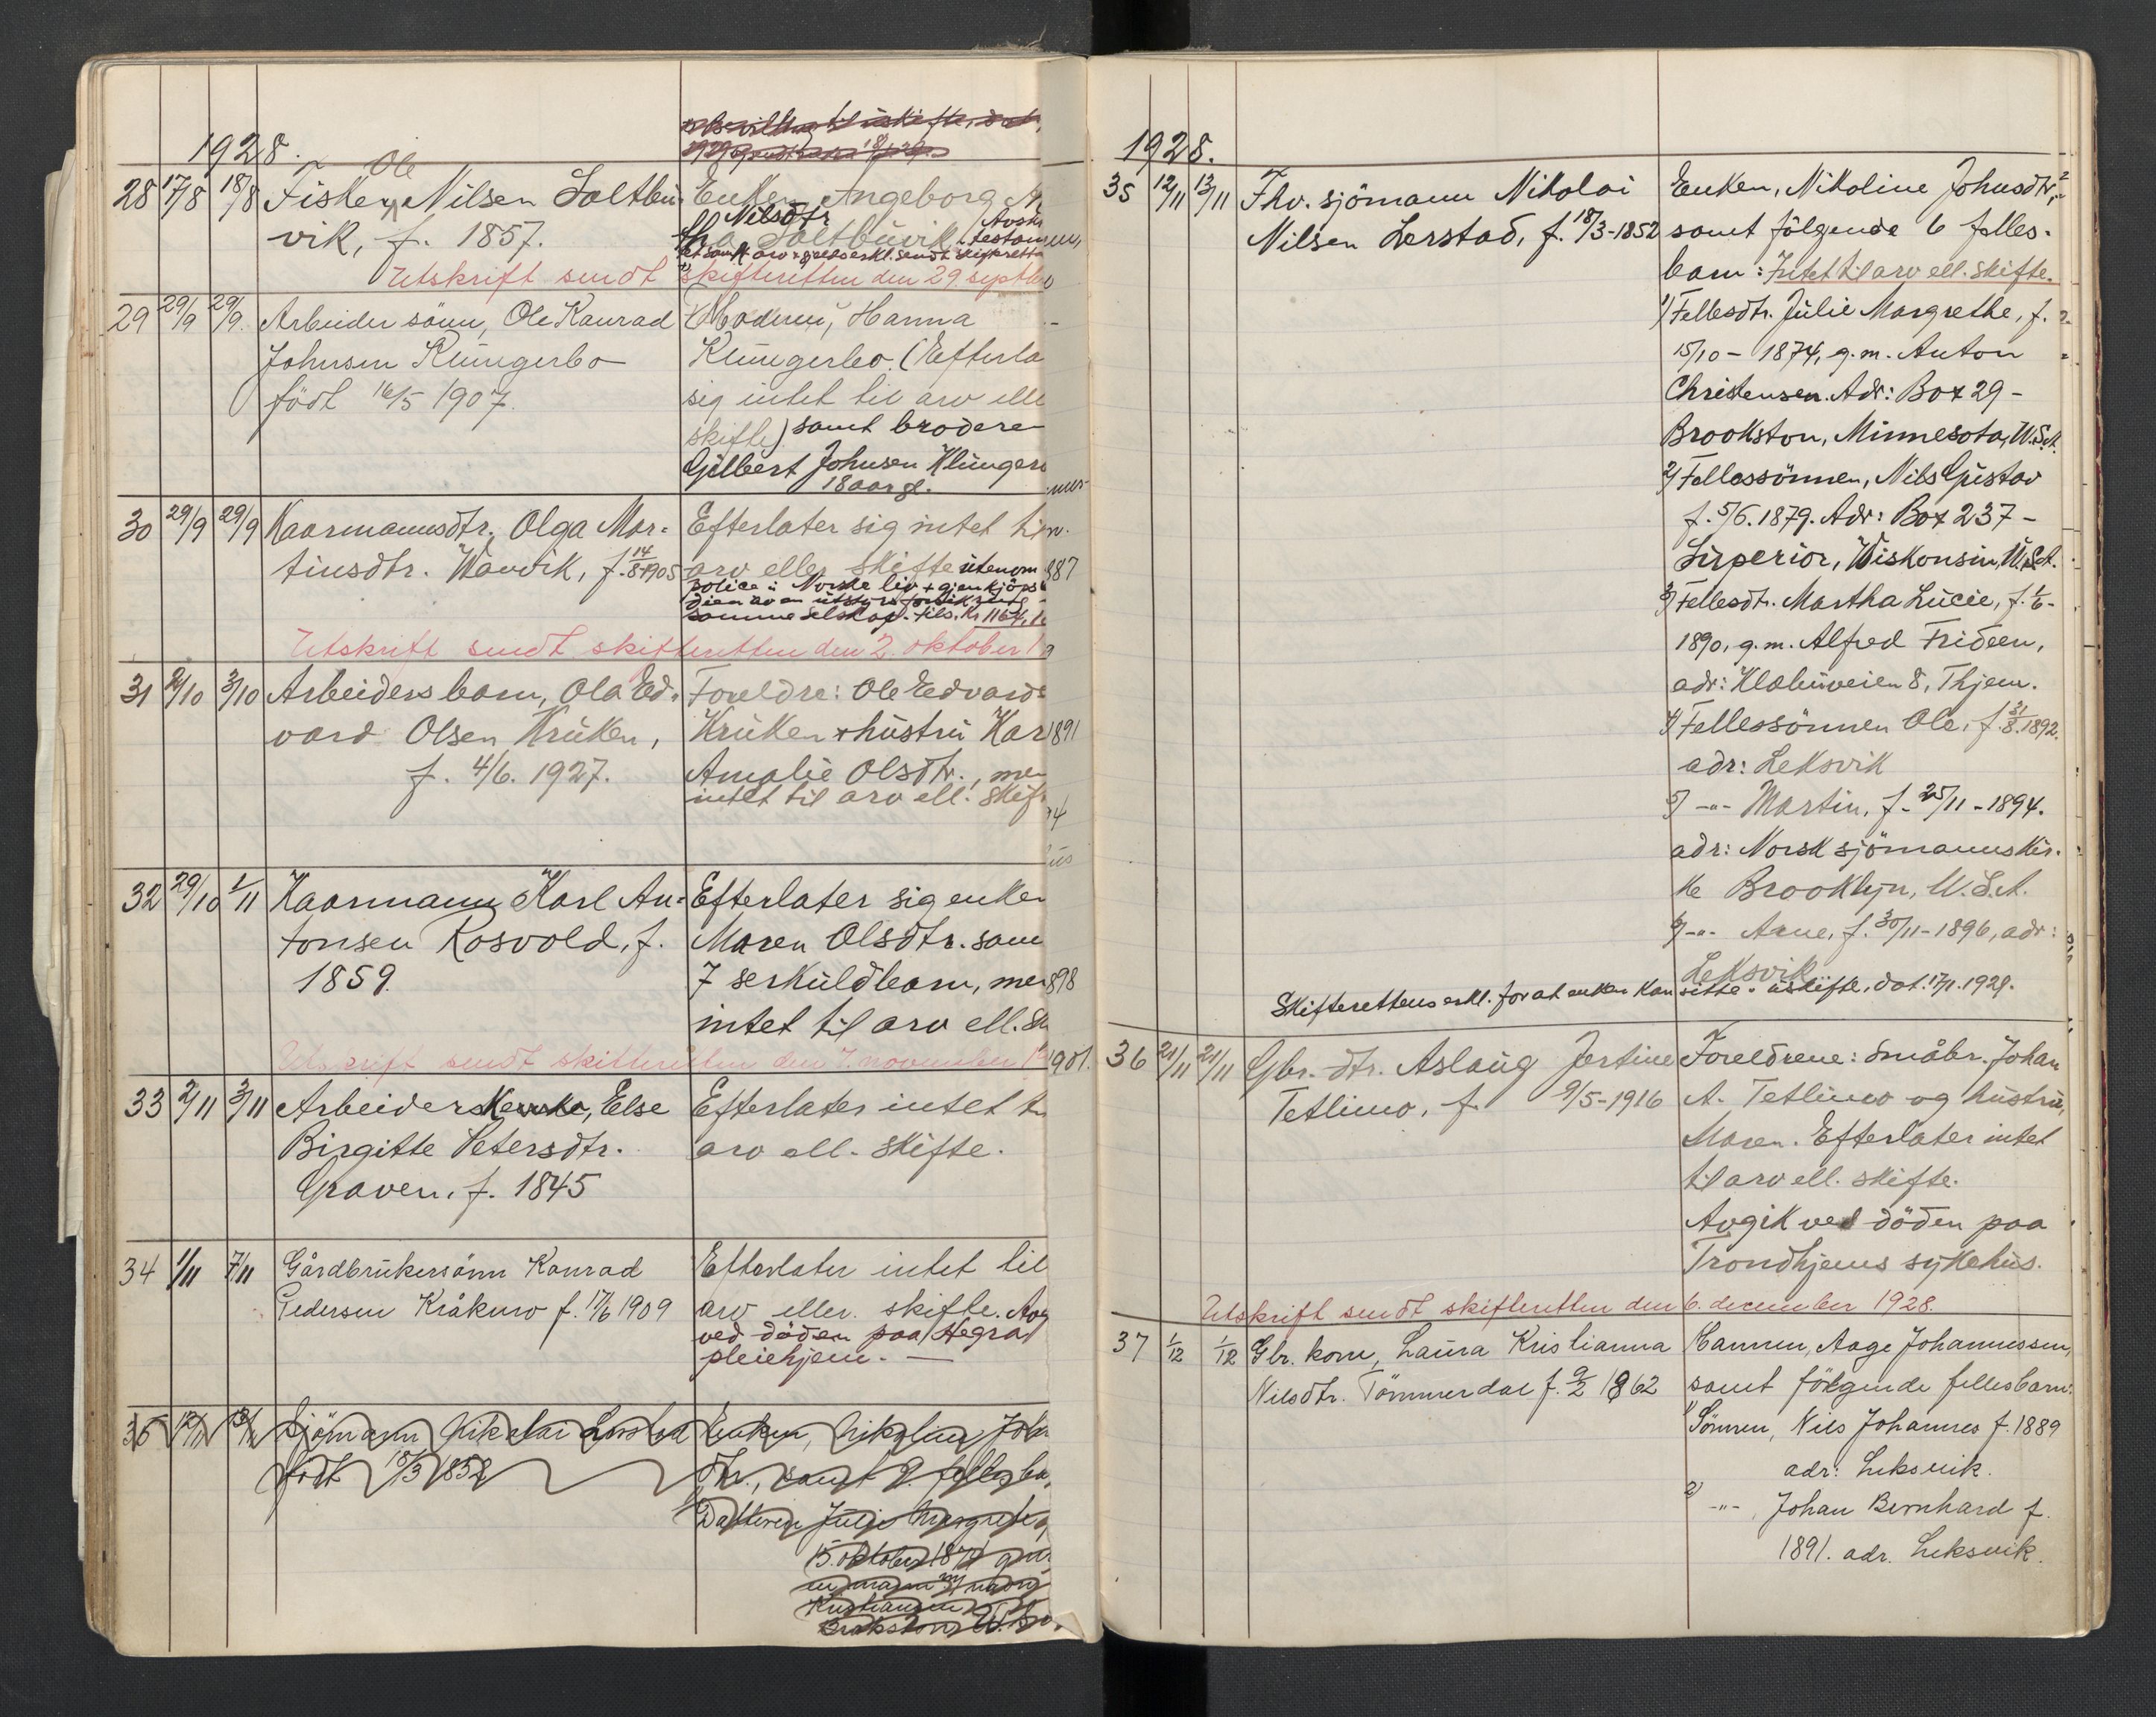 1928.
28 17/8 18/8 Fisker Ole Nilsen Saltbu-
vik, f. 1857.
Enken Angeborg
Nilsdtr
Saltbuvik
Utskrift sendt skifteretten den 29 septbr
29 29/9 29/9. Arbeidersönn, Ole Konrad
Johnsen Klungerbo
födt 16/5 1907.
Moderen, Hanna
Klungerbo. (Efterla
sig intet til arv elle
skifte) samt broderen
Gilbert Johnsen Klünger
18 aar gl.
30 29/9 29/9 Kaarmannsdtr. Olga Mar-
tinsdtr. Wanvik, f. 14/8 1905
Efterlater sig intet til
arv eller skifte utenom
police i Norske liv + gjenkjöps
dien av en utstyrsforsikring
samme selskap. tils. Kr 1167,
Utskrift sendt skifteretten den 2. oktober 1
31 2/10 3/10 Arbeiders barn, Ola Ed-
vard Olsen Krüken,
f. 4/6. 1927.
Foreldre: Ole Edvard
Krüken + hüstrü Kar
Amalie Olsdtr., men
intet til arv ell. skif
32 29/10 1/11 Kaarmann Karl An-
tonsen Rosvold, f.
1859.
Efterlater sig enken
Maren Olsdtr. sam
7 serküldbarn, men
intet til arv ell. sk
Utskrift sendt skifteretten den 7. november 1
33 2/11 3/11 Arbeiderske, Else
Birgitte Petersdtr.
Graven, f. 1845
Efterlater intet til
arv ell. skifte.
34 1/11 7/11 Gårdbrukersönn Konrad
Pedersen Kråkmo f. 17/6 1909
Efterlater intet til
arv eller skifte. Avg
ved döden paa Hegra
pleiehjem. —
35 12/11 13/11 Sjömann Nikolai Lerstad
födt 18/3 1852
Enken, Nikoline John
dtr., samt 2 fellesba
Datteren Julie Margrete
15. oktober 1874
1928.
35 12/11 13/11 Fhv. sjömann Nikolai
Nilsen Lerstad, f. 18/3-1852
Enken, Nikoline Johnsdtr,
samt fölgende 6 felles-
barn: Intet til arv ell. skifte.
1) Fellesdtr. Jülie Margrethe, f.
15/10 - 1874, g.m. Anton
Christensen. Adr: Box 29 -
Brookston, Minnesota, U.S.A.
2) Fellessönnen, Nils Güstav
f. 5/6. 1879. Adr: Box 237 -
Sürperior, Wiskonsin, U.S.A.
3) Fellesdtr. Martha Lücie, f. 1/6-
1890, g.m. Alfred Frideen,
adr: Klabüveien 8, Thjem.
4) Fellessönnen Ole, f. 31/8. 1892.
adr: Leksvik
5) -"- Martin, f. 25/11 - 1894.
adr: Norsk sjömannskir-
ke Brooklyn, U.S.A.
6) -"- Arne, f. 30/11 - 1896, adr:
Leksvik
Skifterettens erkl. for at enken kan sitte i üskifte, dat. 17/1. 1929.
36 21/11 21/11 Gbr. dtr. Aslaüg Jostine
Tetlimo, f. 9/5-1916
Foreldrene: Småbr. Johan
A. Tetlimo og hüstrü,
Maren. Efterlater intet
til arv ell. skifte.
Avgik ved döden paa
Trondhjems sykehüs.
Utskrift sendt skifteretten den 6. december 1928.
37 1/12 1/12 Gbr. kone, Laüra Kristianna
Nilsdtr. Tömmerdal f. 9/2 1862
Mannen, Aage Johannessen,
samt fölgende fellesbarn:
1) Sönnen, Nils Johannes f. 1889
adr: Leksvik.
2) -"- Johan Bernhard f.
1891. adr. Leksvik.